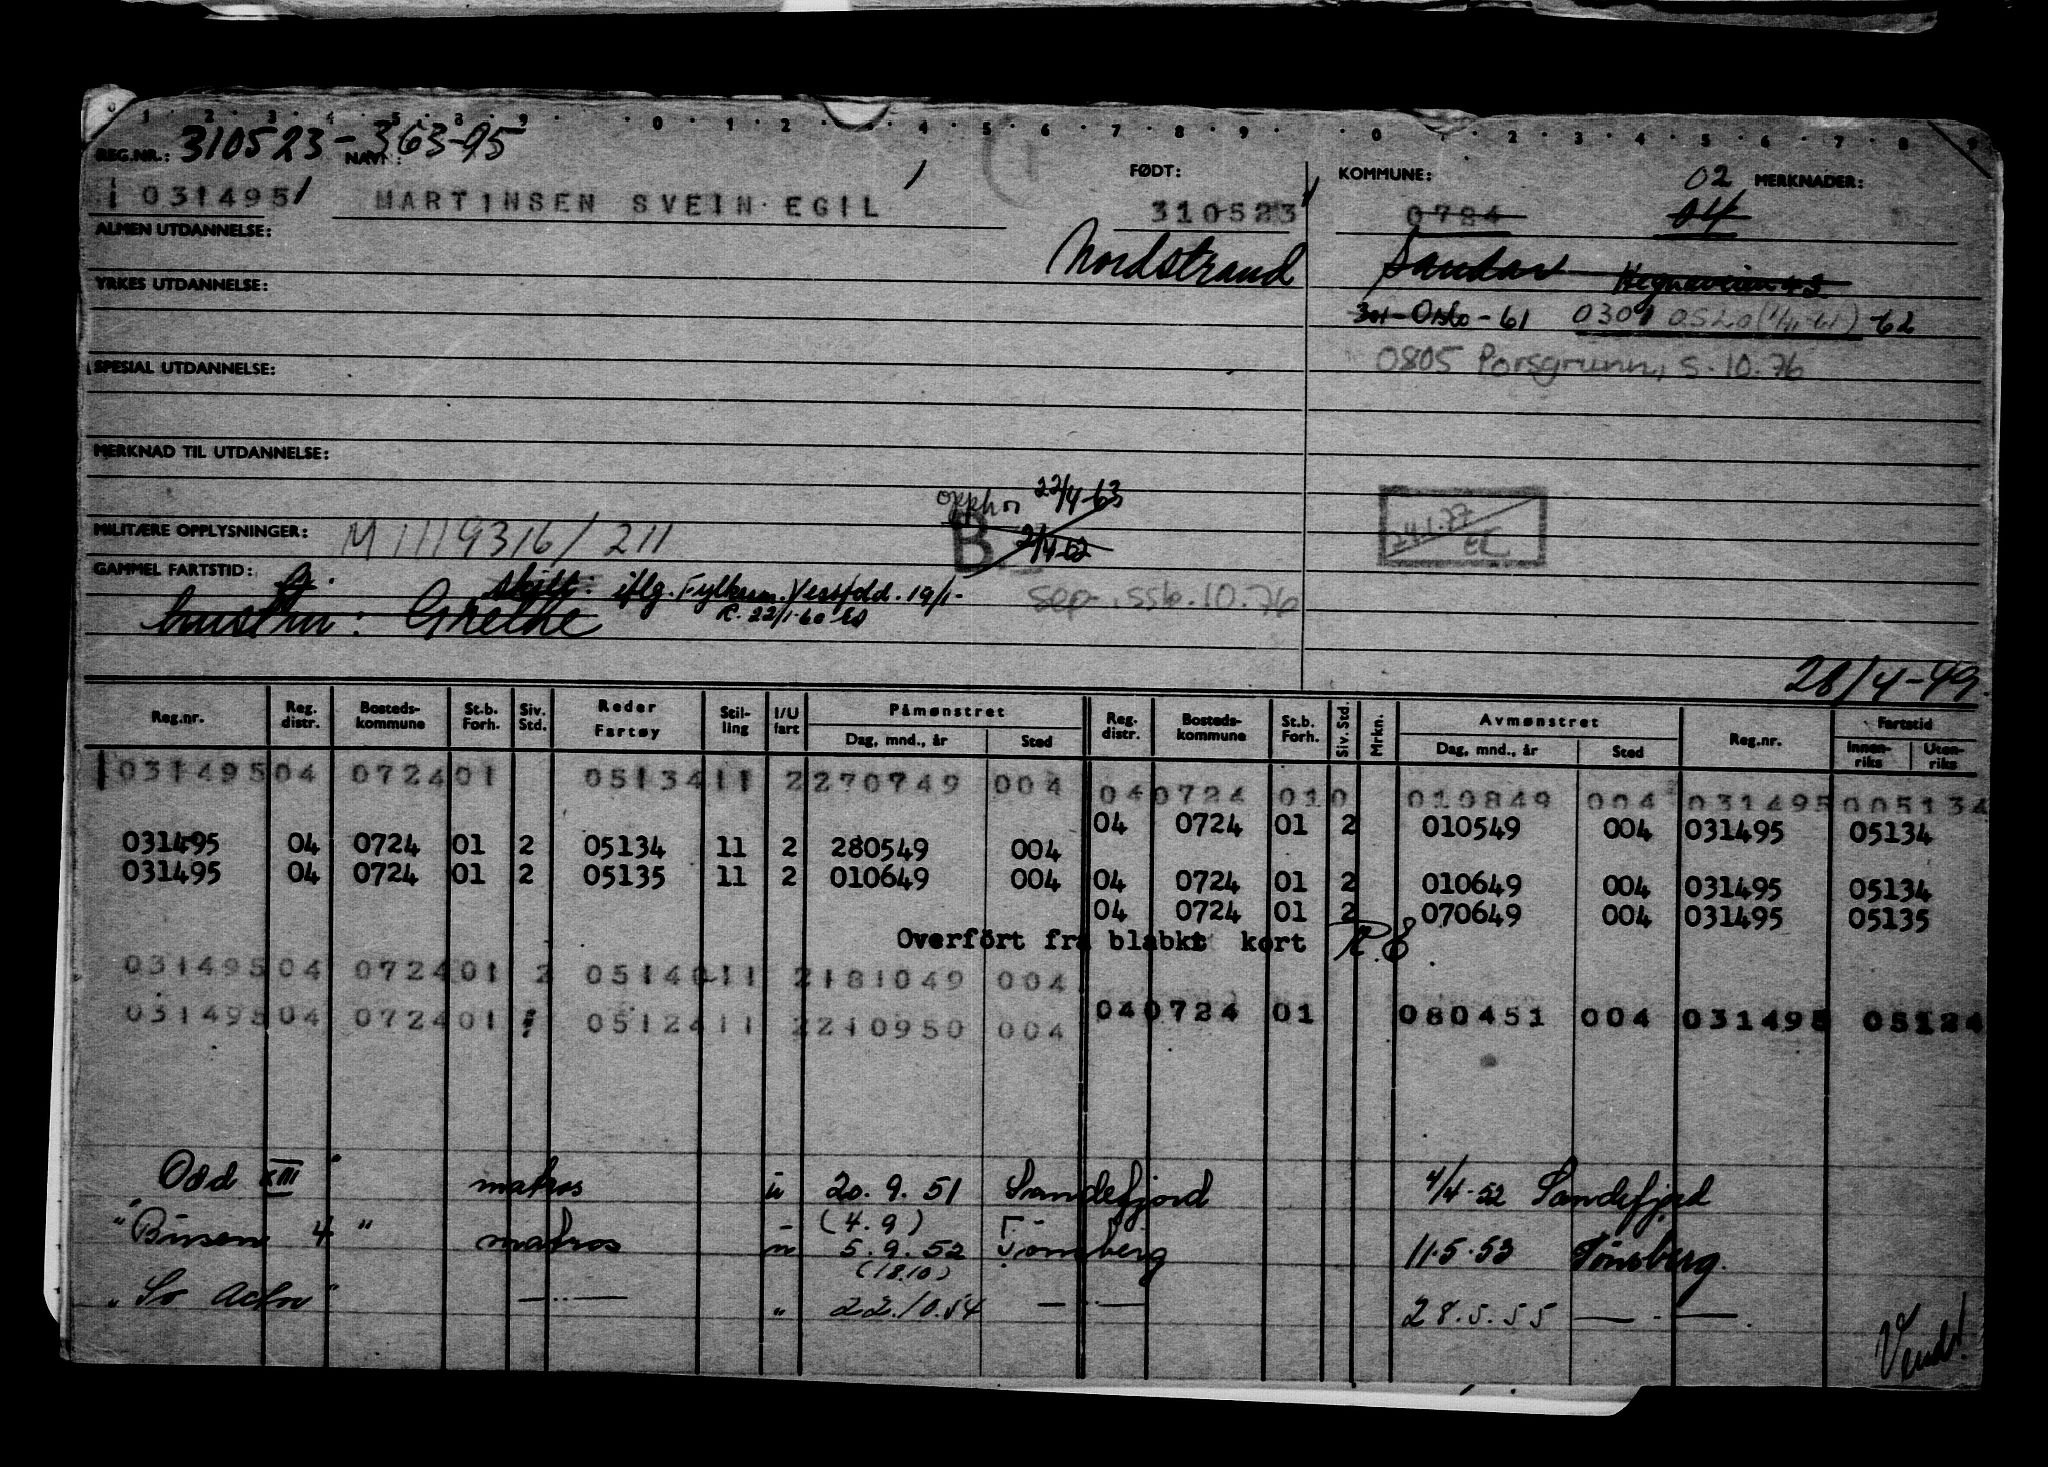 1 2 3 4 5 8 9 0 1 2 4 5 6 7 8 9 0 2 3 4 5 6 7 8 9
REG.NR.: 310523-363-95 NAVN: FØDT: KOMMUNE: 02 MERKNADER:
0314951 MARTINSEN SVEIN EGIL 310523 0724 04
ALMEN UTDANNELSE: Nordstrand Sandar Hegnaveien 43
YRKES UTDANNELSE:
301-Oslo-61 0301 OSLO (1/11-61) -62
SPESIAL UTDANNELSE: 0805 Porsgrunn, s. 10.76
MERKNAD TIL UTDANNELSE:
opph 22/4-63
MILITÆRE OPPLYSNINGER: M 1119316/211 B 2/4-62 24.1.77
GAMMEL FARTSTID: G. skilt: iflg. Fylkesm. Vestfold. 19/1-
hustru: Grethe R. 22/1-60 sep., ssb. 10.76
28/4-49.
Reg.nr. Reg. distr. Bosteds-kommune St.b. Forh. Siv. Std. Reder Fartøy Stil-ling I/U fart Påmønstret Dag, mnd., år Sted Reg. distr. Bosteds-kommune St.b. Forh. Siv. Std. Mrkn. Avmønstret Dag, mnd., år Sted Reg.nr. Fartstid Innen-riks Uten-riks
031495 04 0724 01 05134 11 2 270749 004 04 0724 01 0 010849 004 031495 005134
04 0724 01 2 010549 004 031495 05134
031495 04 0724 01 2 05134 11 2 280549 004
031495 04 0724 01 2 05135 11 2 010649 004 04 0724 01 2 010649 004 031495 05134
04 0724 01 2 070649 004 031495 05135
Overført fra blabkt kort
031495 04 0724 01 2 05140 11 2 181049 004
031495 04 0724 01 05124 11 2 210950 004 04 0724 01 080451 004 031495 05124
" Odd XIII " matros u 20.9.51 Sandefjord 4/4-52 Sandefjord
(4.9)
" Busen 4 " matros u 5.9.52 Tønsberg 11.5.53 Tønsberg.
(18.10)
" " — " — " 22.10.54 — " — 28.5.55 — " —
Vend!